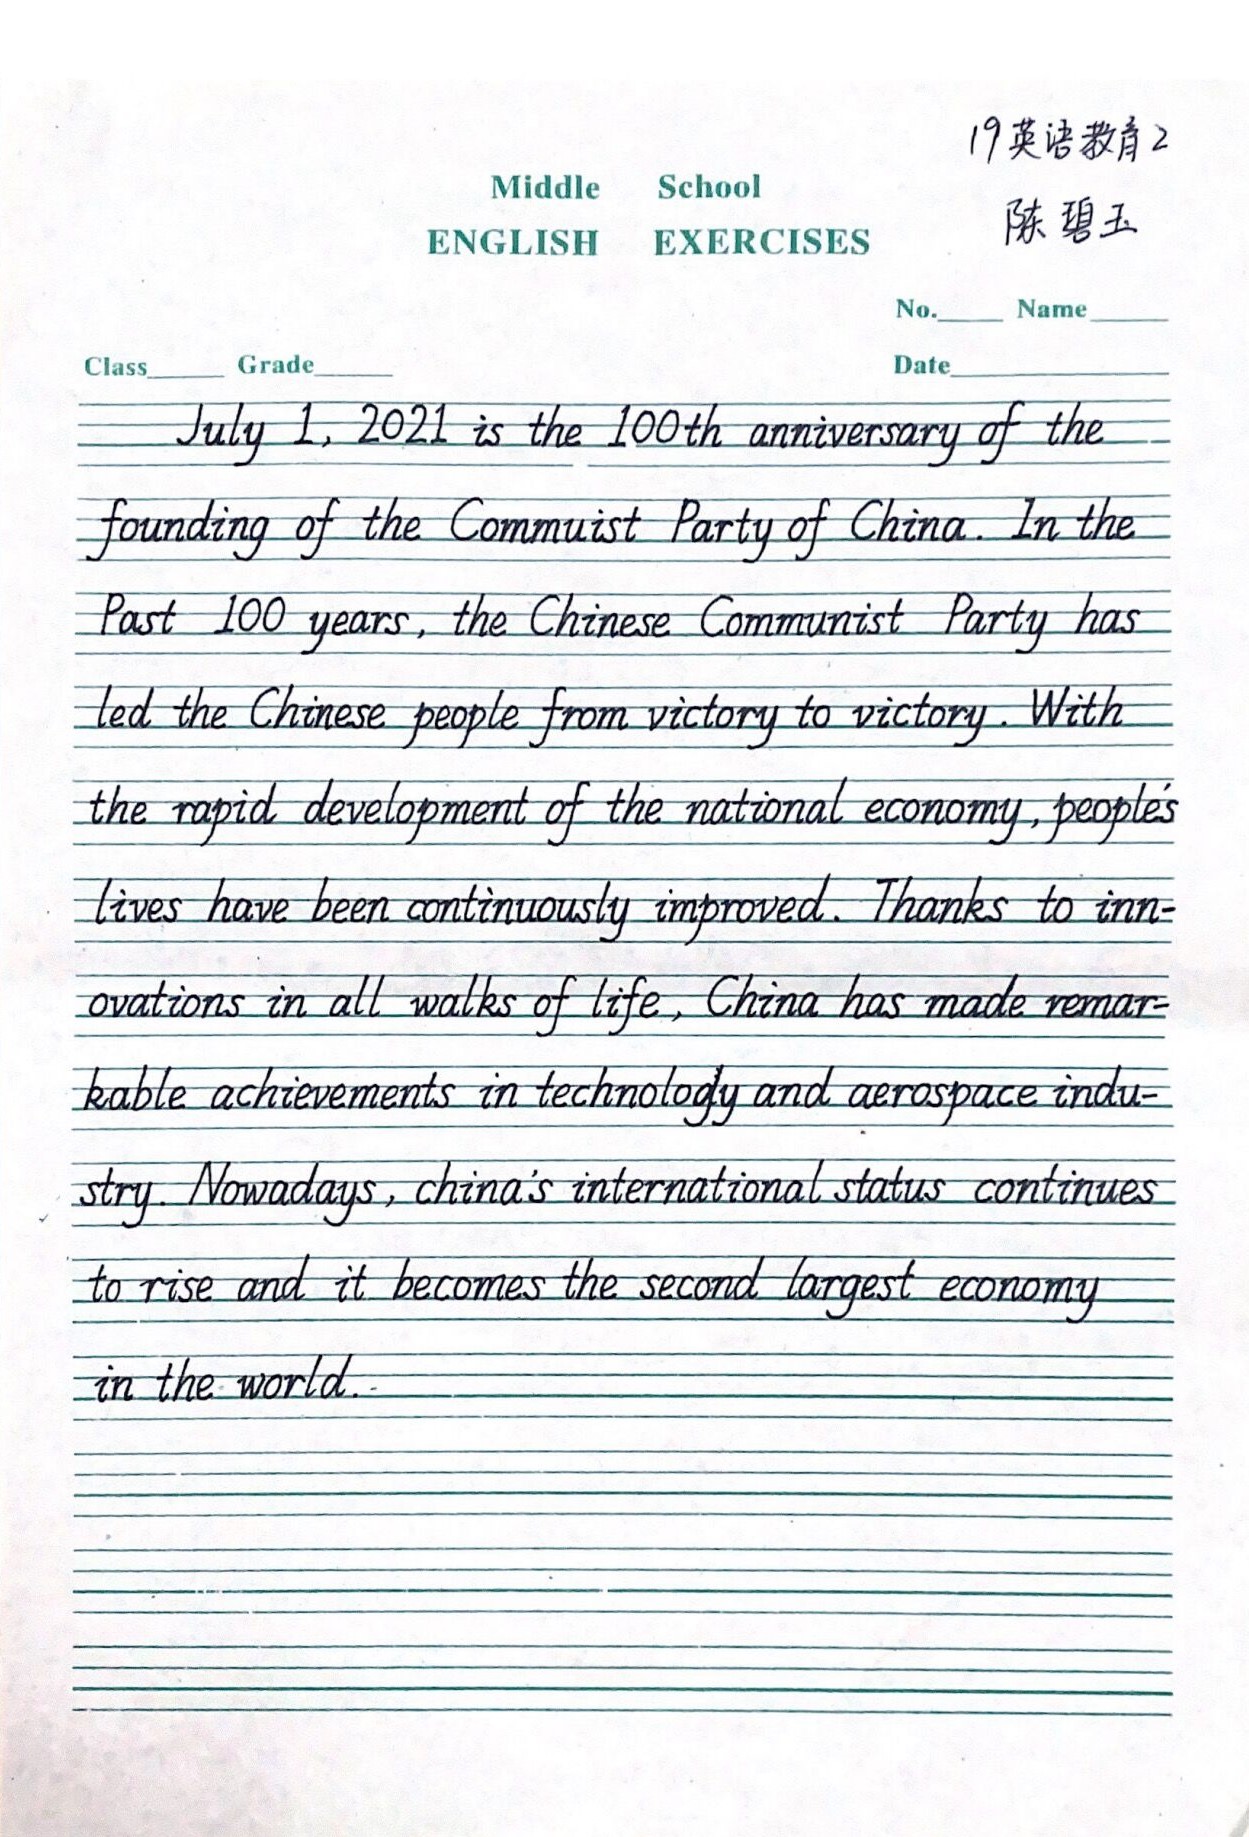 19英语教育2
Middle School
陈碧玉
ENGLISH EXERCISES
No.____ Name____
Class____ Grade____ Date________
July 1, 2021 is the 100th anniversary of the
founding of the Commuist Party of China. In the
Past 100 years, the Chinese Communist Party has
led the Chinese people from victory to victory. With
the rapid development of the national economy, people's
lives have been continuously improved. Thanks to inn-
ovations in all walks of life, China has made remar-
kable achievements in technology and aerospace indu-
stry. Nowadays, china's international status continues
to rise and it becomes the second largest economy
in the world.